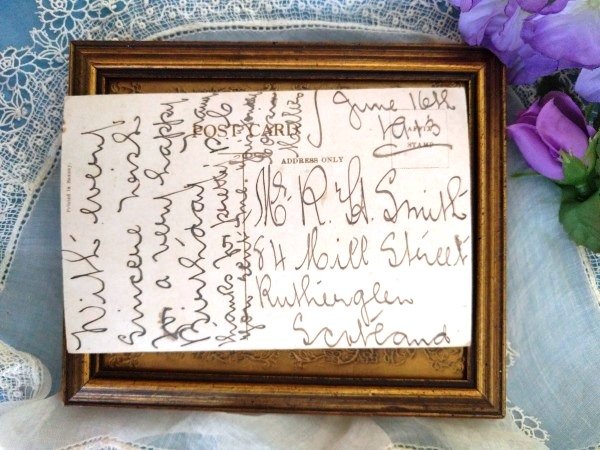 POST CARD
ADDRESS ONLY
Printed in Saxony.
June 16th
STAMP
Mr R. H. Smith
84 Mill Street
Rutherglen
Scotland
With every
Sincere wish
for a very happy
Birthday
thanks for
you sent